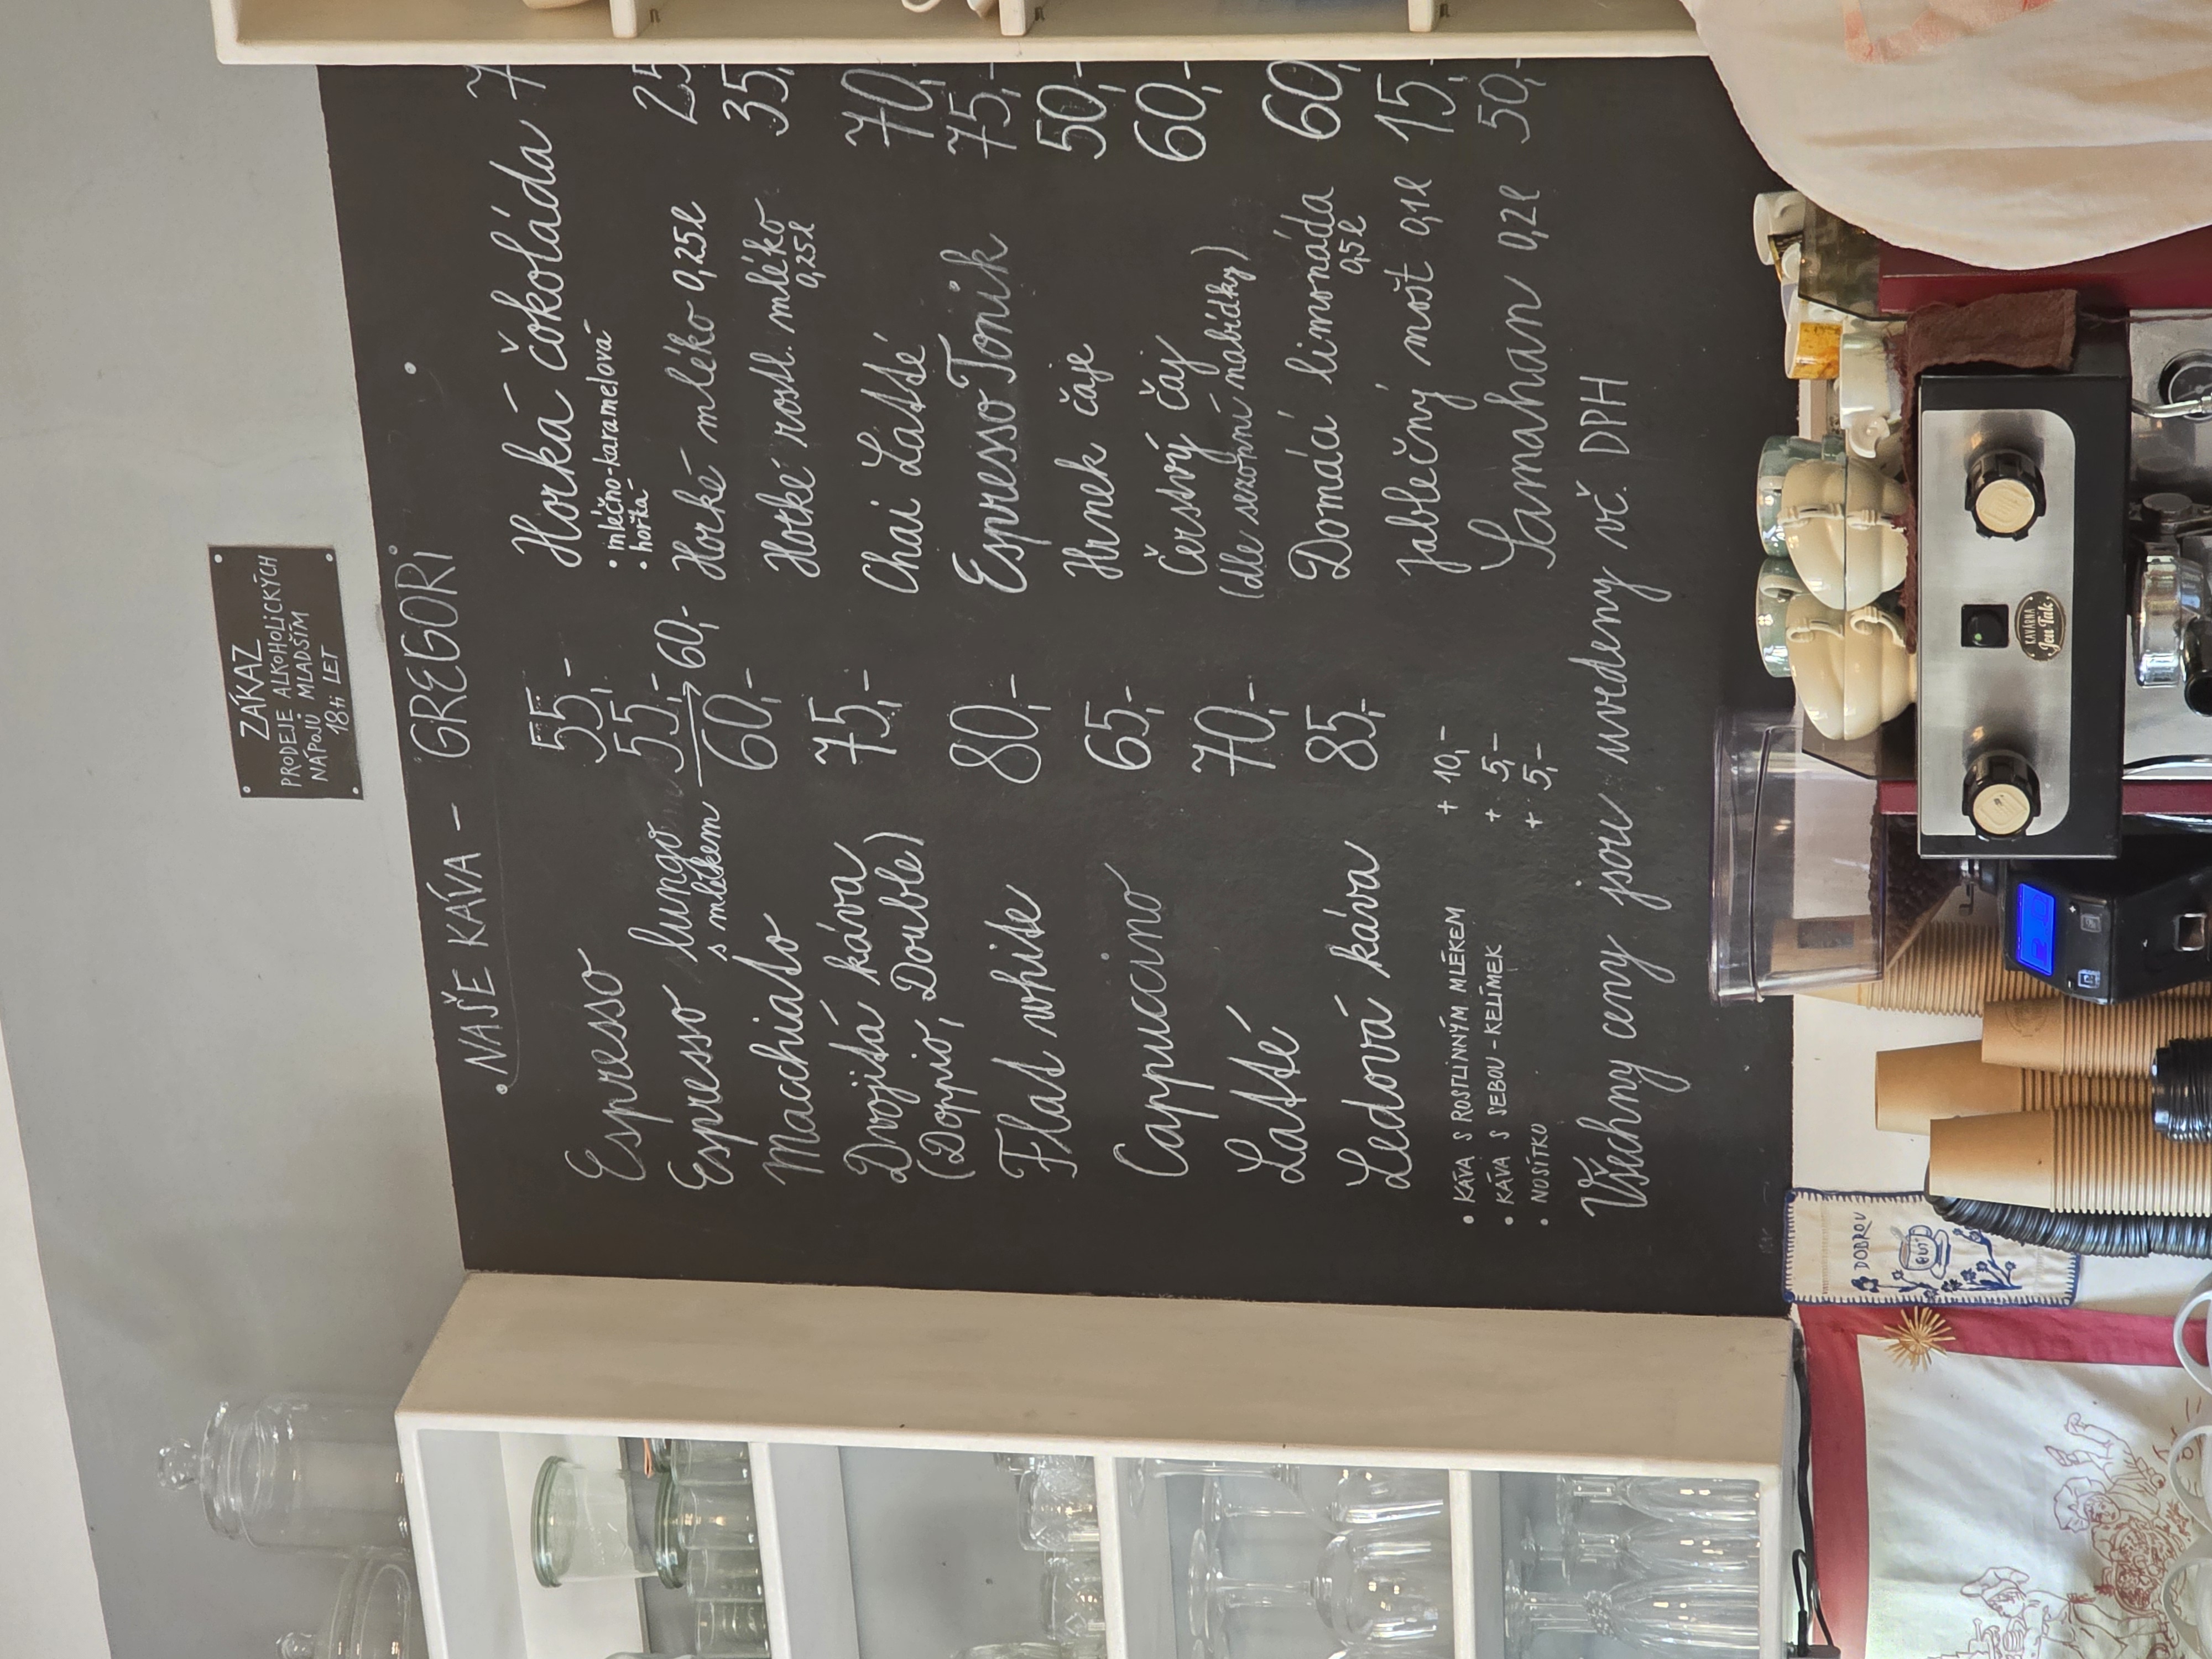 ZÁKAZ
PRODEJE ALKOHOLICKÝCH
NÁPOJŮ MLADŠÍM
18ti LET
• NAŠE KÁVA – GREGORI •
Espresso 55,-
Espresso lungo 55,-
s mlékem → 60,-
Macchiato 60,-
Dvojitá káva 75,-
(Doppio, Double)
Flat white 80,-
Cappuccino 65,-
Latté 70,-
Ledová káva 85,-
• KÁVA S ROSTLINNÝM MLÉKEM + 10,-
• KÁVA S SEBOU - KELÍMEK + 5,-
• NOSÍTKO + 5,-
Horká čokoláda 7
• mléčno-karamelová
• hořká
Horké mléko 0,25l 25
Horké rostl. mléko 35,
0,25l
Chai Latté 70,-
Espresso Tonik 75,-
Hrnek čaje 50,-
Čerstvý čaj 60,-
(dle sezonní nabídky)
Domácí limonáda 60,
0,5l
Jablečný mošt 0,1l 15,-
Samahan 0,2l 50,-
Všechny ceny jsou uvedeny vč. DPH
KAVÁRNA
Jen Tak
DOBROU
CHUŤ